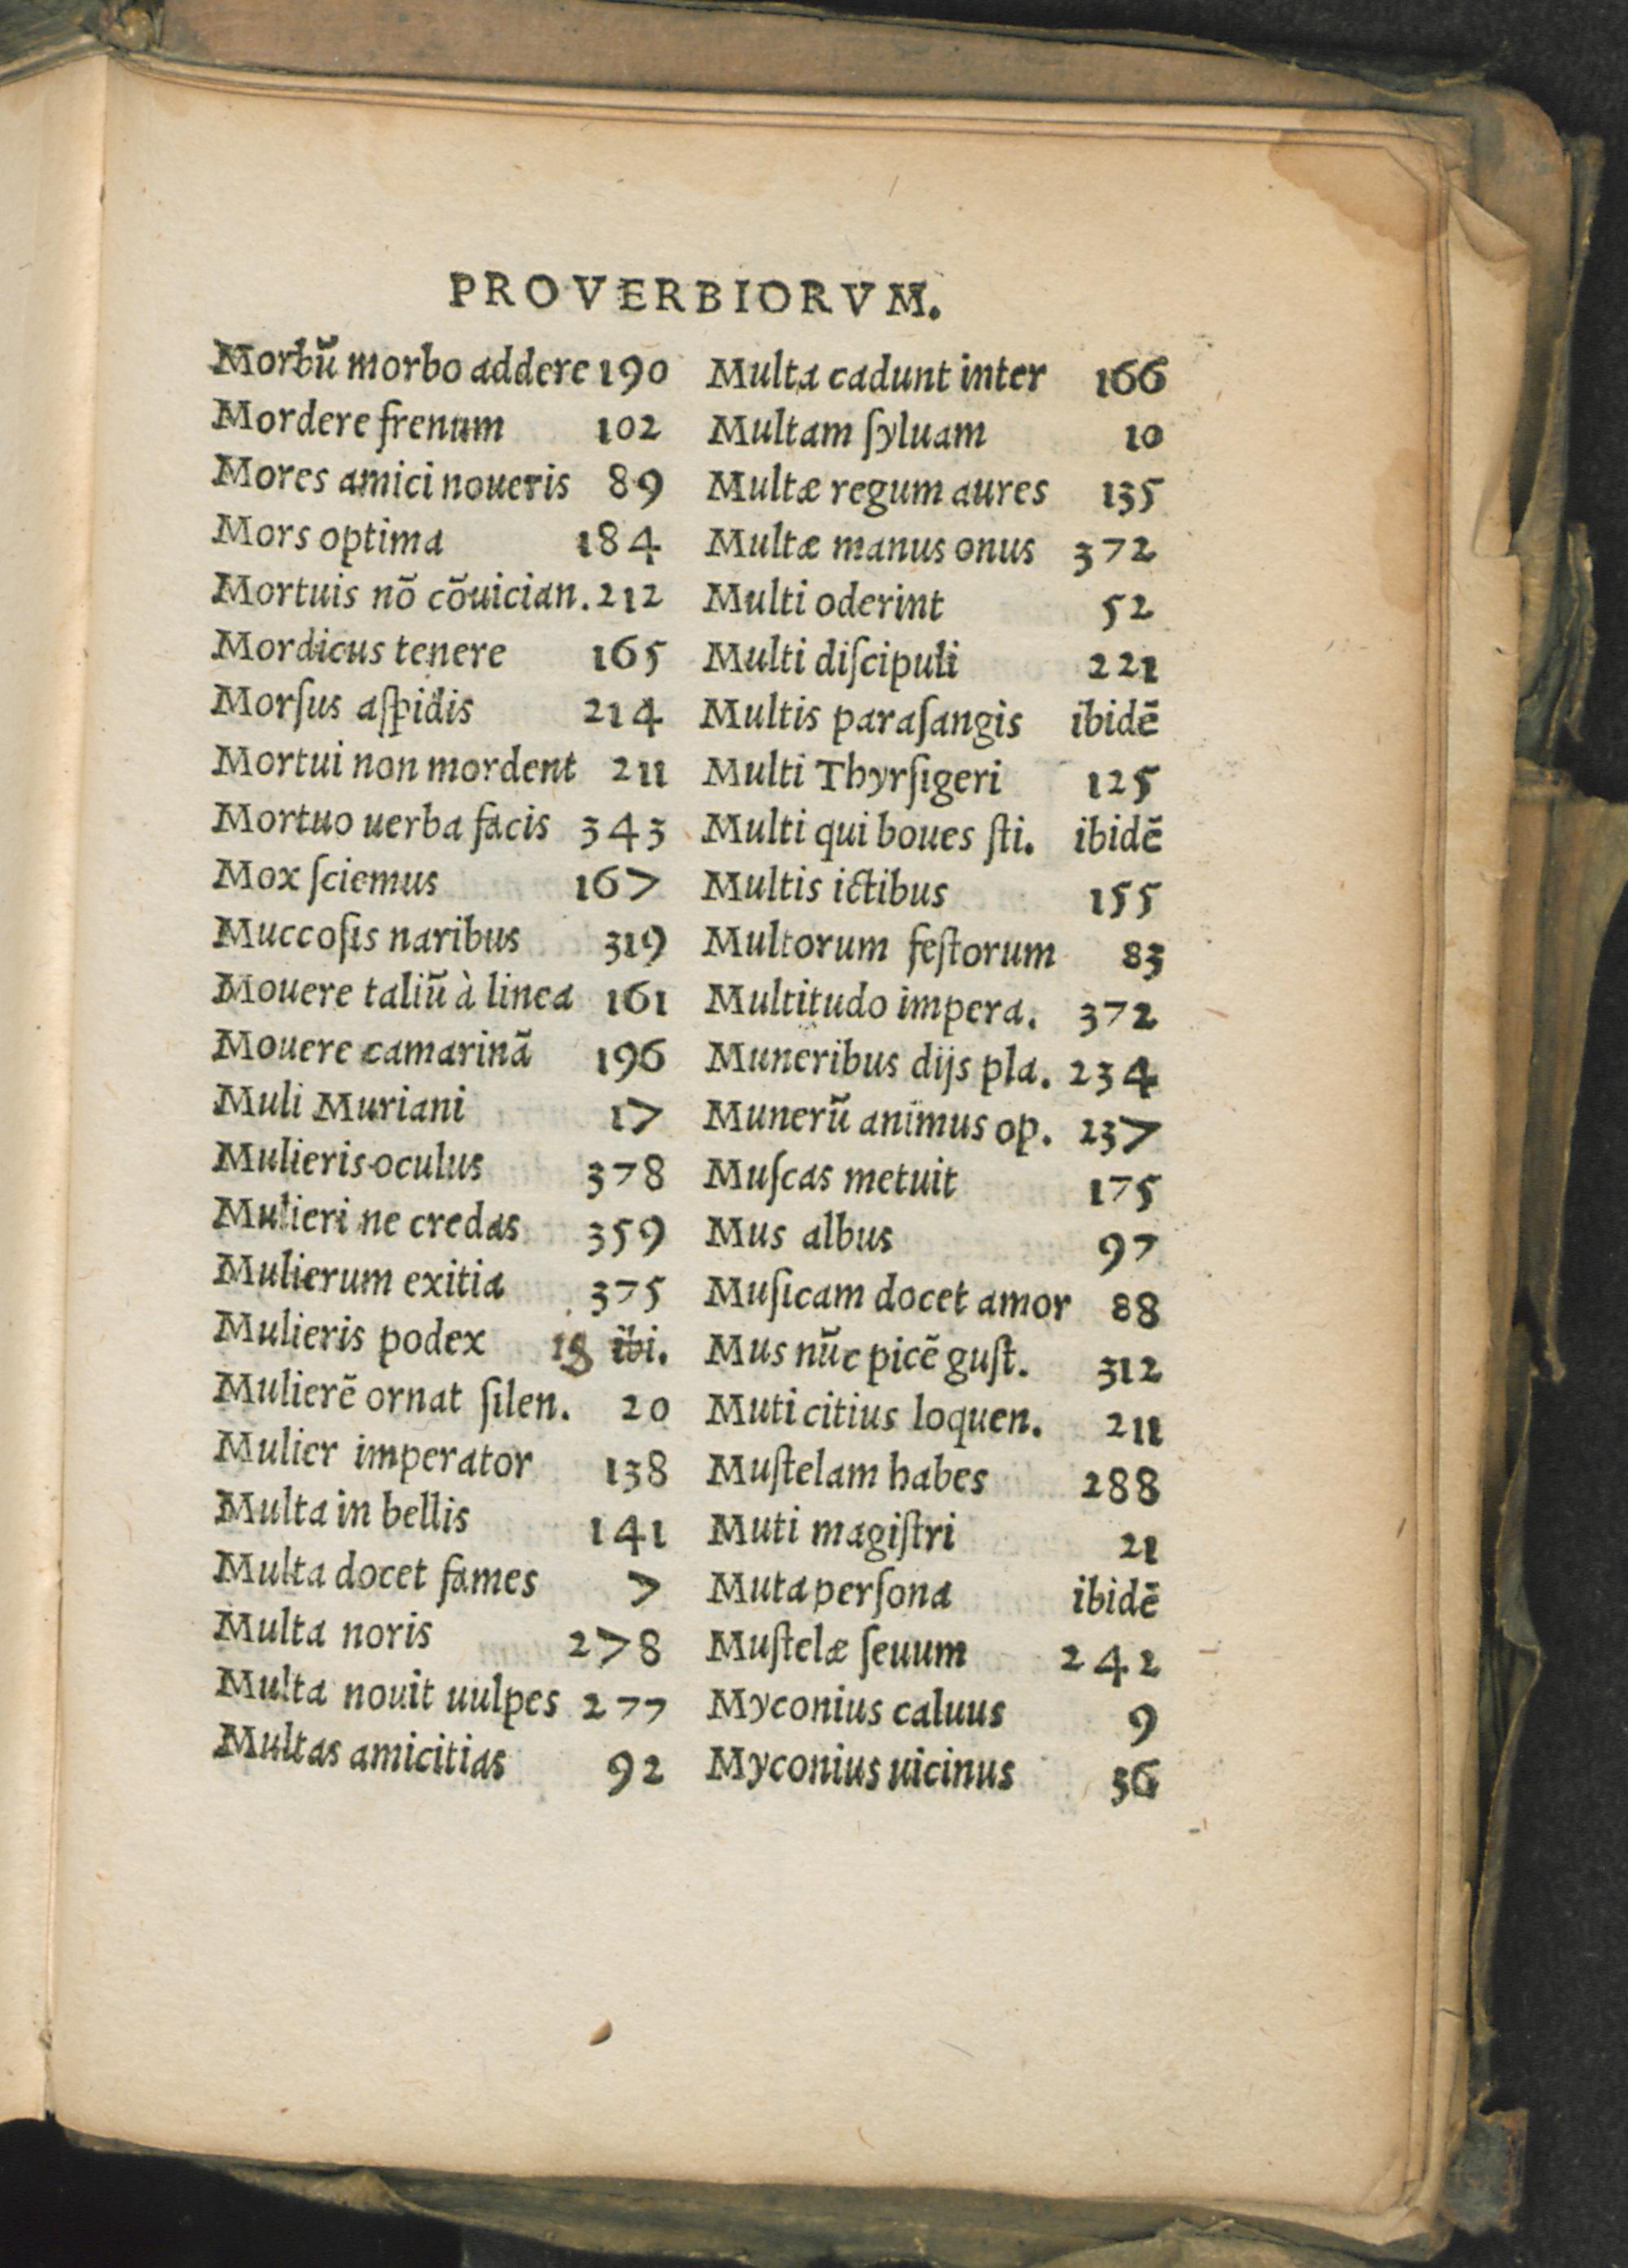 PROVERBIORVM.
Morbū morbo addere 190
Mordere frenum 102
Mores amici noueris 89
Mors optima 184
Mortuis nō cōuician. 212
Mordicus tenere 165
Morſus aſpidis 214
Mortui non mordent 211
Mortuo uerba facis 343
Mox ſciemus 167
Muccoſis naribus 319
Mouere taliū à linea 161
Mouere camarinā 196
Muli Muriani 17
Mulieris oculus 378
Mulieri ne credas 359
Mulierum exitia 375
Mulieris podex 18 ibi.
Mulierē ornat ſilen. 20
Mulier imperator 138
Multa in bellis 141
Multa docet fames 7
Multa noris 278
Multa nouit uulpes 277
Multas amicitias 92
Multa cadunt inter 166
Multam ſyluam 10
Multæ regum aures 135
Multæ manus onus 372
Multi oderint 52
Multi diſcipuli 221
Multis paraſangis ibidē
Multi Thyrſigeri 125
Multi qui boues ſti. ibidē
Multis ictibus 155
Multorum feſtorum 83
Multitudo impera. 372
Muneribus dijs pla. 234
Munerū animus op. 237
Muſcas metuit 175
Mus albus 97
Muſicam docet amor 88
Mus nūc picē guſt. 312
Muti citius loquen. 211
Muſtelam habes 288
Muti magiſtri 21
Muta perſona ibidē
Muſtelæ ſeuum 242
Myconius caluus 9
Myconius uicinus 36